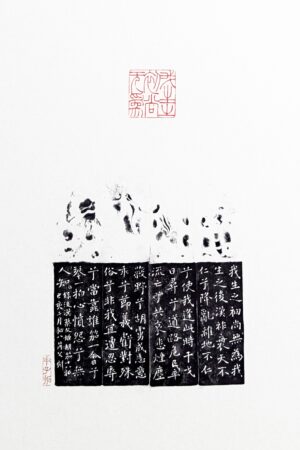 我生
之初尚
无為
我生之初尚無為我
生之後漢祚衰天不
仁兮降亂離地不仁
兮使我逢此時干戈
日尋兮道路危民卒
流亡兮共哀悲煙塵
蔽野兮胡虜盛志意
乖兮節義虧對殊
俗兮非我宜遭惡辱
兮當告誰笳一會兮
琴一拍心憤怨兮無
人知